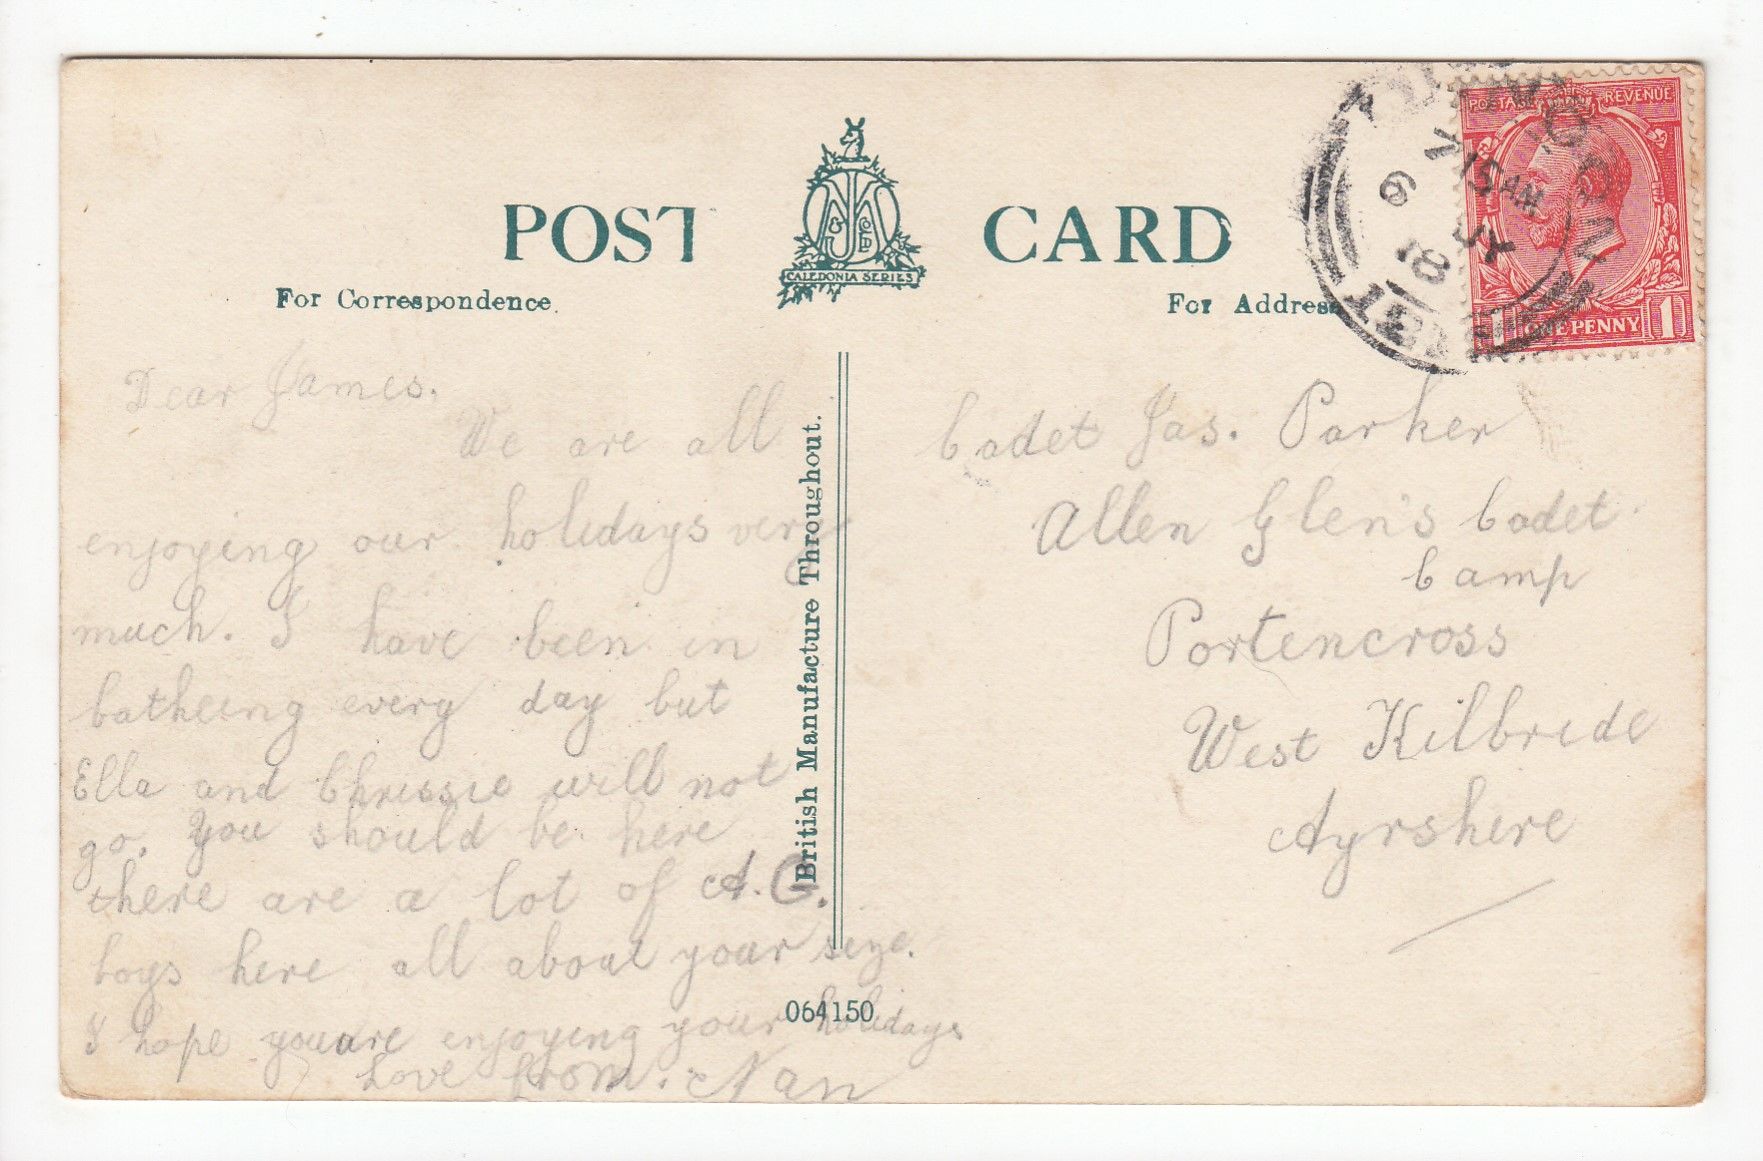 POST CARD
CALEDONIA SERIES
For Correspondence.
For Address
POSTAGE REVENUE
1 ONE PENNY 1
9 JY
18
Dear James.
We are all
enjoying our holidays very
much. I have been in
batheing every day but
Ella and Chrissie will not
go. You should be here
there are a lot of A. G.
boys here all about your size.
I hope you are enjoying your holidays
Love from. Nan
British Manufacture Throughout.
064150
Cadet Jas. Parker
Allen Glen's Cadet
Camp
Portencross
West Kilbride
Ayrshire